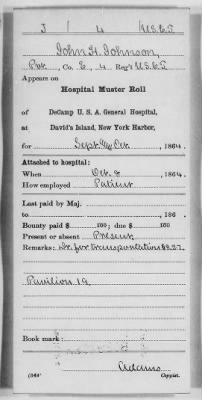 J | 4 | U.S.C.T.
John H. Johnson,
Pvt., Co. E, 4 Reg't U.S.C.T.
Appears on
Hospital Muster Roll
of DeCamp U. S. A. General Hospital,
at David's Island, New York Harbor,
for Sept. & Oct., 1864.
Attached to hospital:
When Oct. 2, 1864.
How employed Patient
Last paid by Maj.
to , 186 .
Bounty paid $ 100; due $ 100
Present or absent Present
Remarks: Dr. for transportation $3.27.
Pavilion 19.
Book mark:
Adams
Copyist.